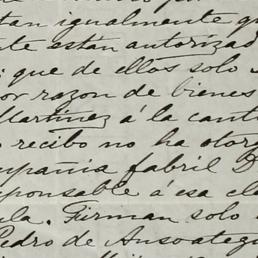 tan igualmente qu
te están autorizad
que de ellos solo
or razon de bienes
Martinez á la canti
recibo no ha otorg
mpañia fabril D
sponsable á esa cl
ula. Firman solo
Pedro de Ansoategui